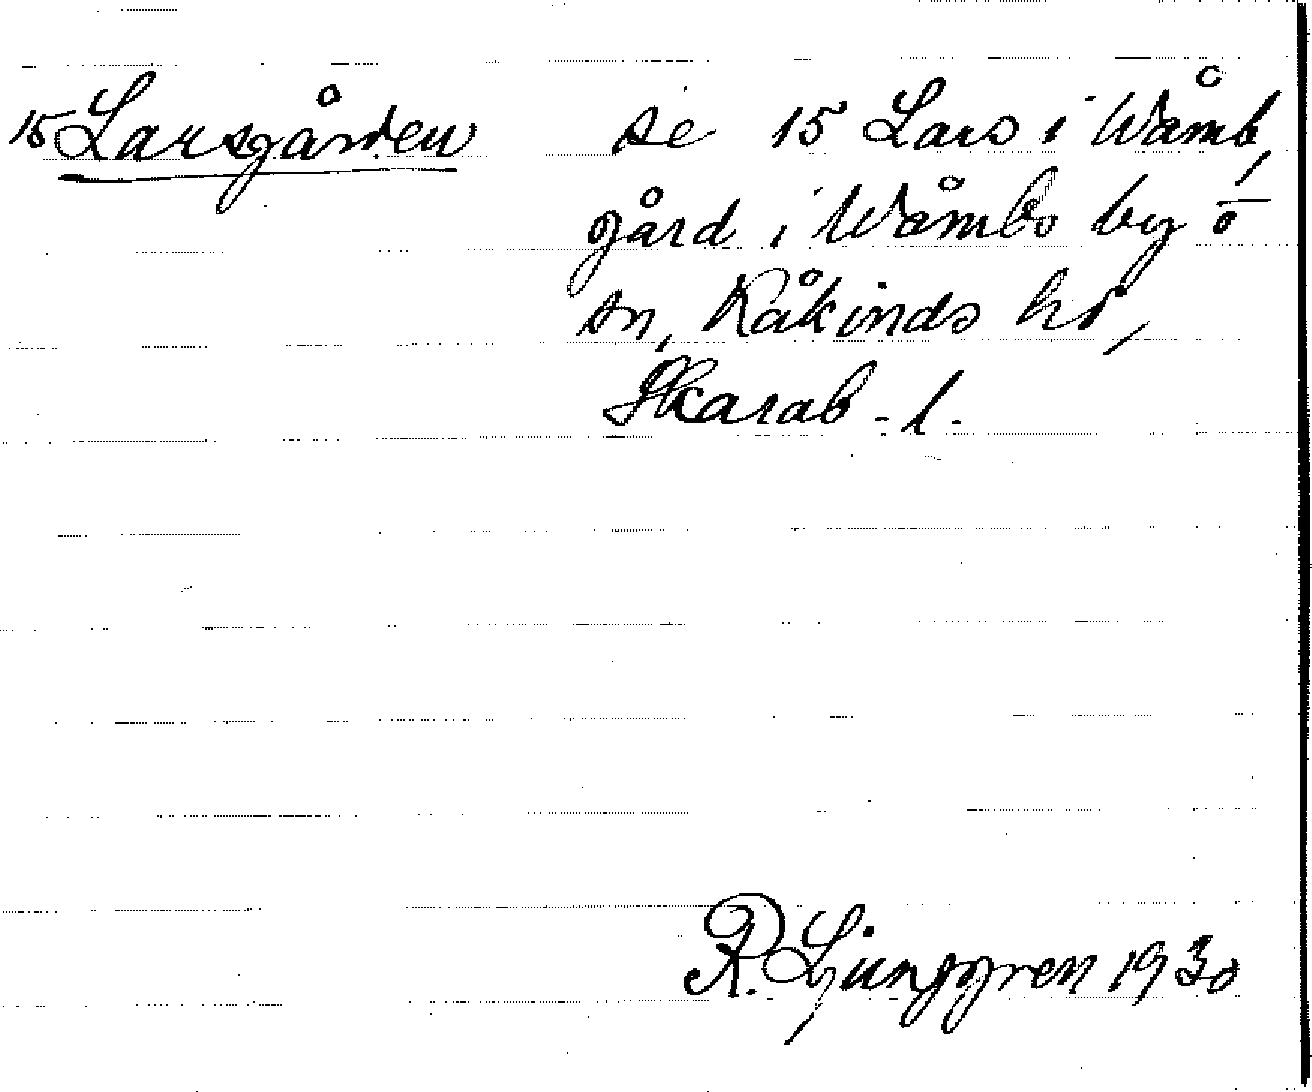 15 Larsgården se 15 Lars i Wåmb,
gård i Wåmbs by o
sn, Kåkinds hd,
Skarab. l.
R. Ljunggren 1930